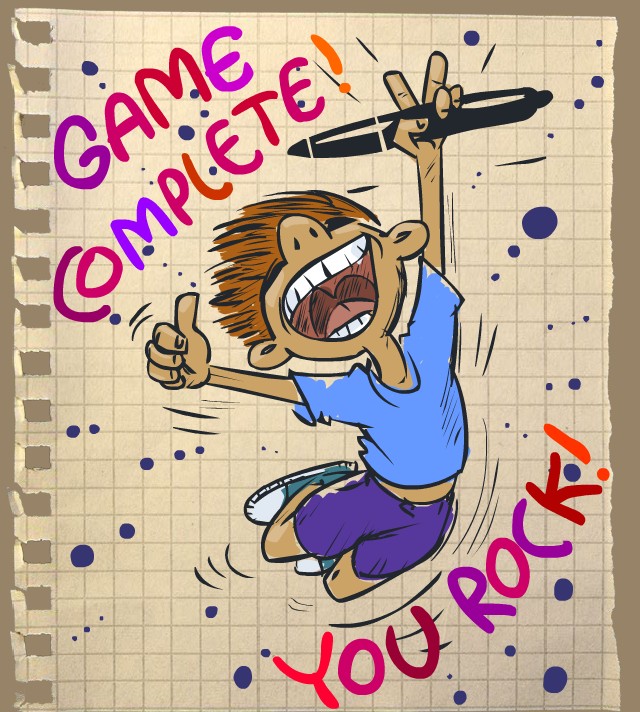 GAME
COMPLETE!
YOU ROCK!